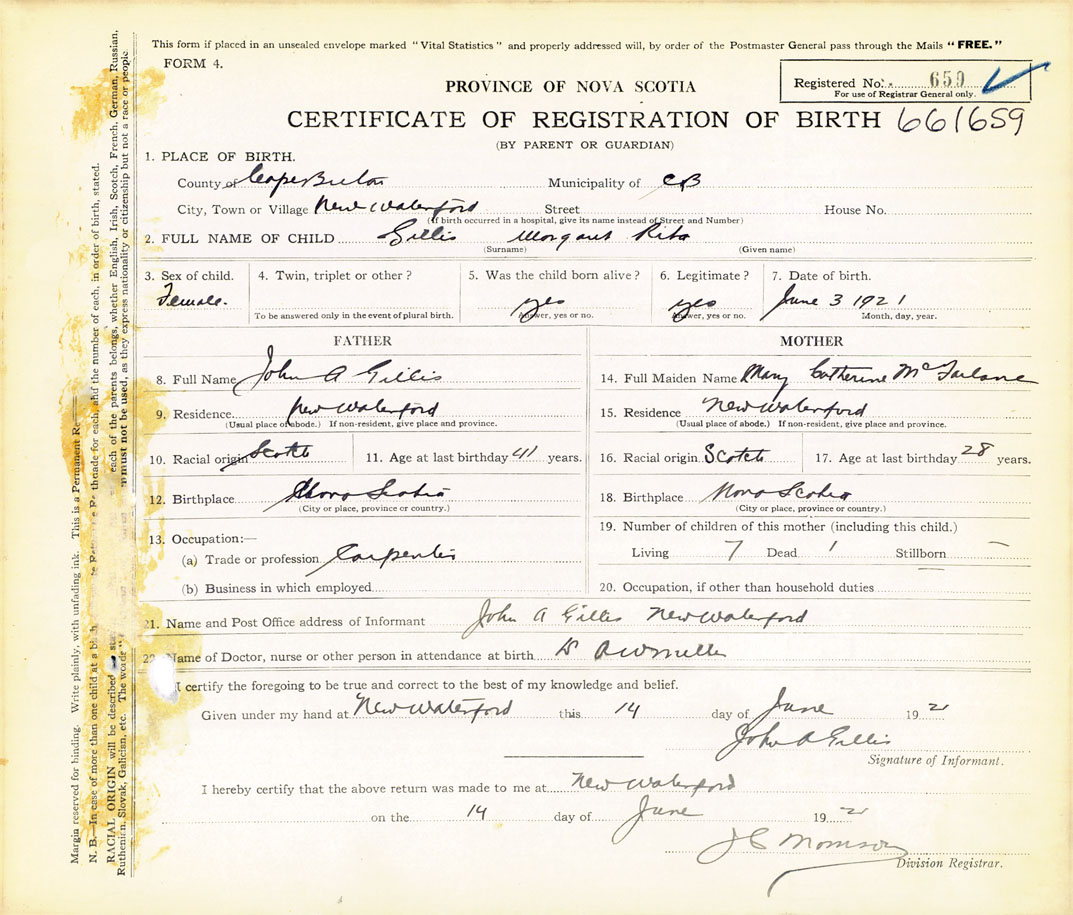 This form if placed in an unsealed envelope marked "Vital Statistics" and properly addressed will, by order of the Postmaster General pass through the Mails "FREE."
FORM 4.
Registered No. 659
For use of Registrar General only.
PROVINCE OF NOVA SCOTIA
CERTIFICATE OF REGISTRATION OF BIRTH 661659
(BY PARENT OR GUARDIAN)
1. PLACE OF BIRTH.
County of Cape Breton Municipality of CB
City, Town or Village New Waterford Street House No.
(If birth occurred in a hospital, give its name instead of Street and Number)
2. FULL NAME OF CHILD Gillis Margaret Rita
(Surname) (Given name)
3. Sex of child. 4. Twin, triplet or other? 5. Was the child born alive? 6. Legitimate? 7. Date of birth.
Female. yes yes June 3 1921
To be answered only in the event of plural birth. Answer, yes or no. Answer, yes or no. Month, day, year.
FATHER
8. Full Name John A Gillis
9. Residence New Waterford
(Usual place of abode.) If non-resident, give place and province.
10. Racial origin Scotch 11. Age at last birthday 41 years.
12. Birthplace Nova Scotia
(City or place, province or country.)
13. Occupation:—
(a) Trade or profession Carpenter
(b) Business in which employed
MOTHER
14. Full Maiden Name Mary Catherine McFarlane
15. Residence New Waterford
(Usual place of abode.) If non-resident, give place and province.
16. Racial origin Scotch 17. Age at last birthday 28 years.
18. Birthplace Nova Scotia
(City or place, province or country.)
19. Number of children of this mother (including this child.)
Living 7 Dead 1 Stillborn —
20. Occupation, if other than household duties
21. Name and Post Office address of Informant John A Gillis New Waterford
22. Name of Doctor, nurse or other person in attendance at birth
I certify the foregoing to be true and correct to the best of my knowledge and belief.
Given under my hand at New Waterford this 14 day of June 192
John A Gillis
Signature of Informant.
I hereby certify that the above return was made to me at New Waterford
on the 14 day of June 192
J C Morrison
Division Registrar.
Margin reserved for binding. Write plainly, with unfading ink. This is a Permanent Re
N. B.—In case of more than one child at a made for each, and the number of each, in order of birth, stated.
RACIAL ORIGIN will be described each of the parents belongs, whether English, Irish, Scotch, French, German, Russian,
Ruthenian, Slovak, Galician, etc. The words must not be used, as they express nationality or citizenship but not a race or people.